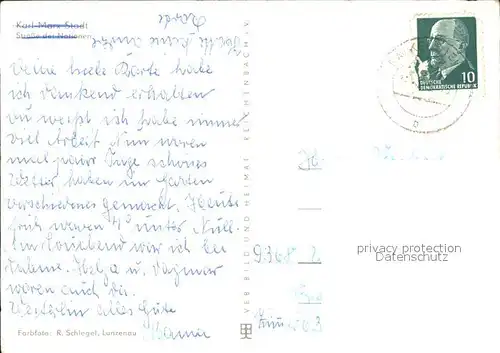 Karl-Marx-Stadt
Straße der Nationen
Karte
keine andre
Deine liebe Karte habe
ich dankend erhalten
du weißt ich habe immer
viel Arbeit Nun waren
mal paar Tage schönes
Wetter, haben im Garten
verschiedenes gemacht. Heute
früh waren 4° unter Null.
war ich bei
Helga u. Dagmar
waren auch da.
alles Gute
Mama
Farbfoto: R. Schlegel, Lunzenau
VEB BILD UND HEIMAT REICHENBACH i. V.
10
DEUTSCHE
DEMOKRATISCHE REPUBLIK
9368
Zimmer 63
privacy protection
Datenschutz